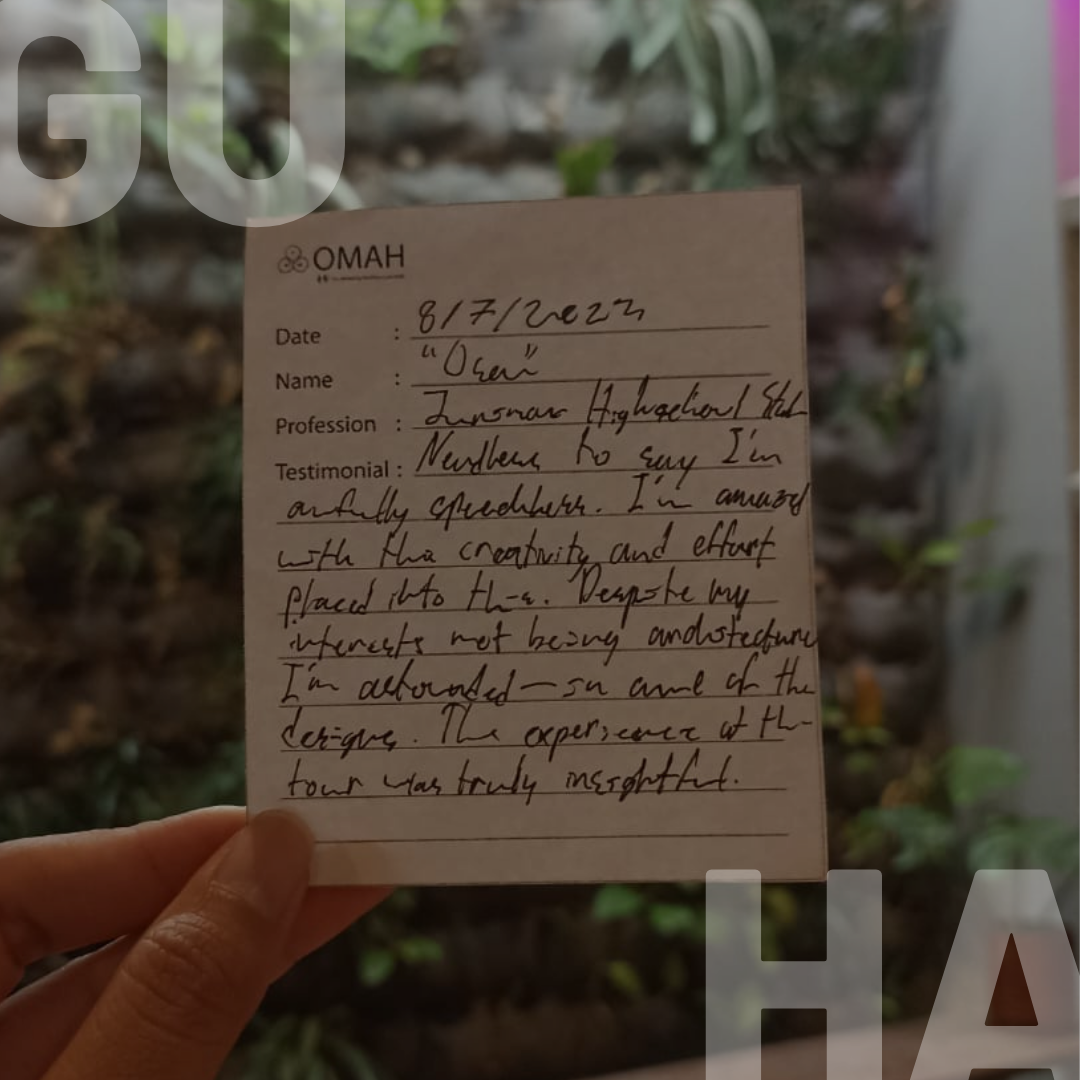 GU
OMAH
Date : 8/7/2023
Name :
Profession : Highschool
Testimonial : Needless to say I'm
awfully speechless. I'm amazed
with the creativity and effort
placed into this. Despite my
interests not being architecture
I'm astounded — in awe of the
designs. The experience of the
tour was truly insightful.
HA